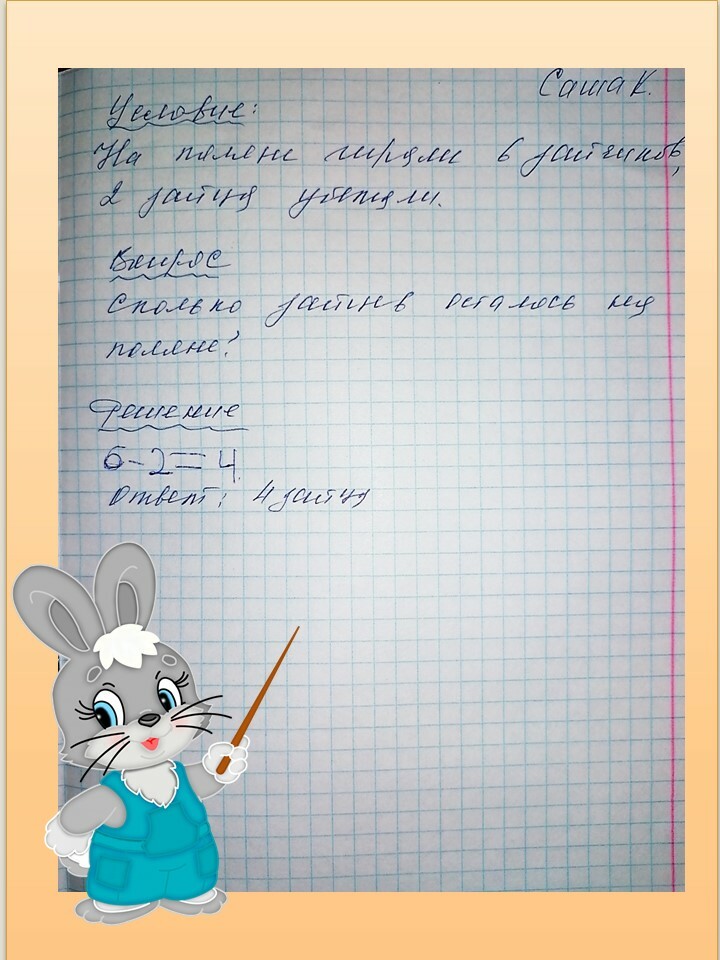 Саша К.
Условие:
На поляне играли 6 зайчиков,
2 зайца убежали.
Вопрос
Сколько зайцев осталось на
поляне?
Решение
6-2=4
Ответ: 4 зайца